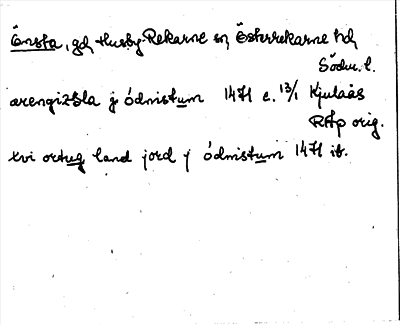 Önsta, gd, Husby-Rekarne sn, Österrekarne hd,
Södm. l.
arengizbla j ódmistum 1471 e. 13/1 Kjulaås
RAp orig.
xvi ortug land jord j ódmistum 1471 ib.